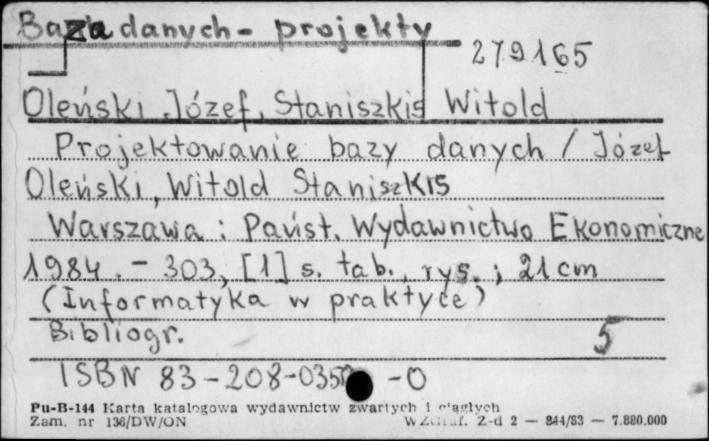 Baza danych - projekty
279165
Oleński Józef, Staniszkis Witold
Projektowanie bazy danych / Józef
Oleński, Witold Staniszkis
Warszawa : Państ. Wydawnictwo Ekonomiczne
1984. - 303, [1] s. tab., rys. ; 21 cm
(Informatyka w praktyce)
Bibliogr. 5
ISBN 83-208-035 -0
Pu-B-144 Karta katalogowa wydawnictw zwartych i ciągłych
Zam. nr 136/DW/ON WZGraf. Z-d 2 — 844/83 — 7.880.000